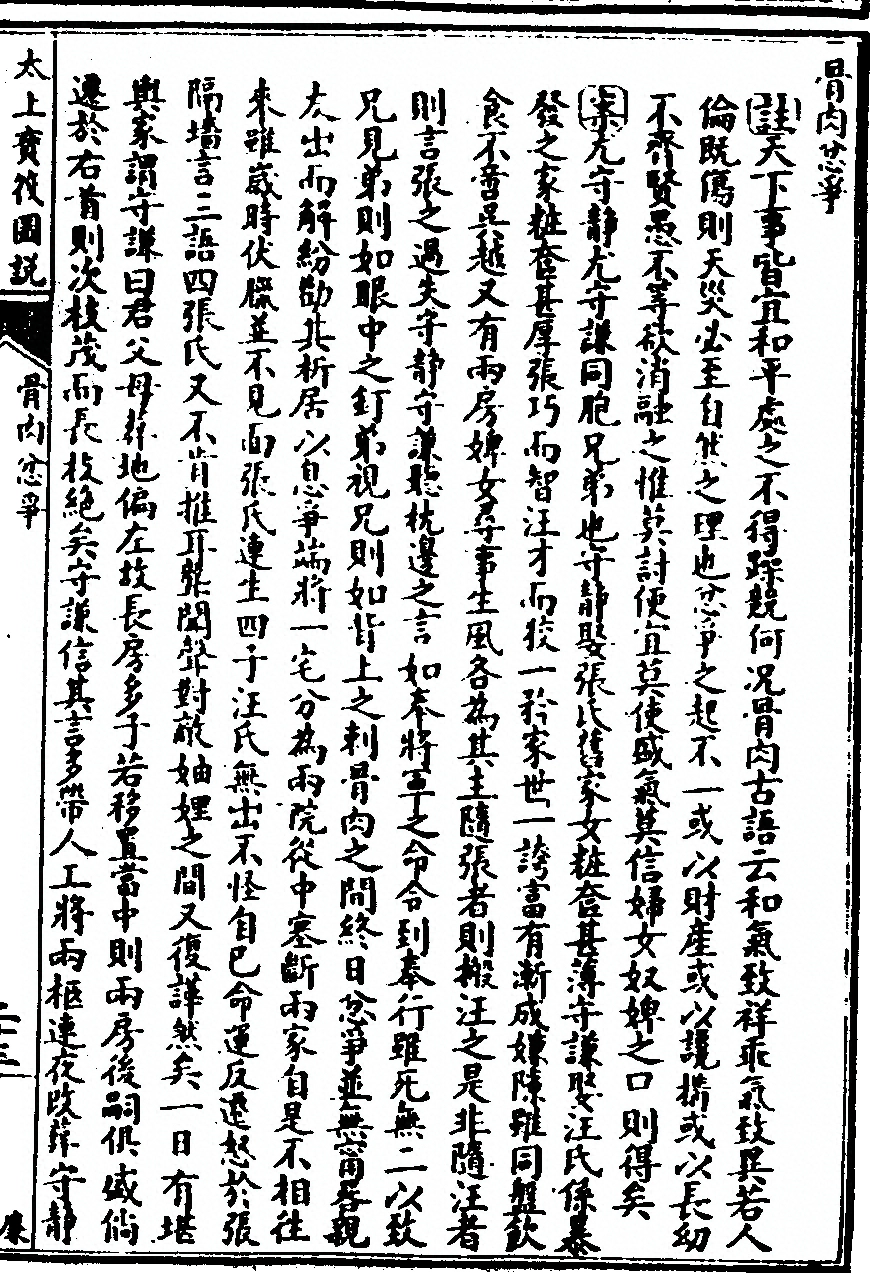 骨肉忿爭
註天下事皆宜和平處之不得躁競何况骨肉古語云和氣致祥乖氣致異若人
倫既傷則天災必至自然之理也忿爭之起不一或以財產或以讒搆或以長幼
不齊賢愚不等欲消融之惟莫討便宜莫使盛氣莫信婦女奴婢之口則得矣
案尤守靜尤守謙同胞兄弟也守靜娶張氏舊家女粧奩甚薄守謙娶汪氏係暴
發之家粧奩甚厚張巧而智汪才而狡一矜家世一誇富有漸成嫌隙雖同盤飲
食不啻吳越又有兩房婢女尋事生風各為其主隨張者則搬汪之是非隨汪者
則言張之過失守靜守謙聽枕邊之言如奉將軍之命令到奉行雖死無二以致
兄見弟則如眼中之釘弟視兄則如背上之刺骨肉之間終日忿爭並無甯晷親
友出而解紛勸其析居以息爭端將一宅分為兩院從中塞斷兩家自是不相往
來雖歲時伏臘並不見面張氏連生四子汪氏無出不怪自己命運反遷怒於張
隔墻言三語四張氏又不肯推耳裝聞聲對敵妯娌之間又復譁然矣一日有堪
輿家謂守謙曰君父母葬地偏左故長房多子若移置當中則兩房後嗣俱盛倘
遷於右首則次枝茂而長枝絕矣守謙信其言多帶人工將兩柩連夜改葬守靜
太上寶筏圖說
骨肉忿爭
二十三
廉